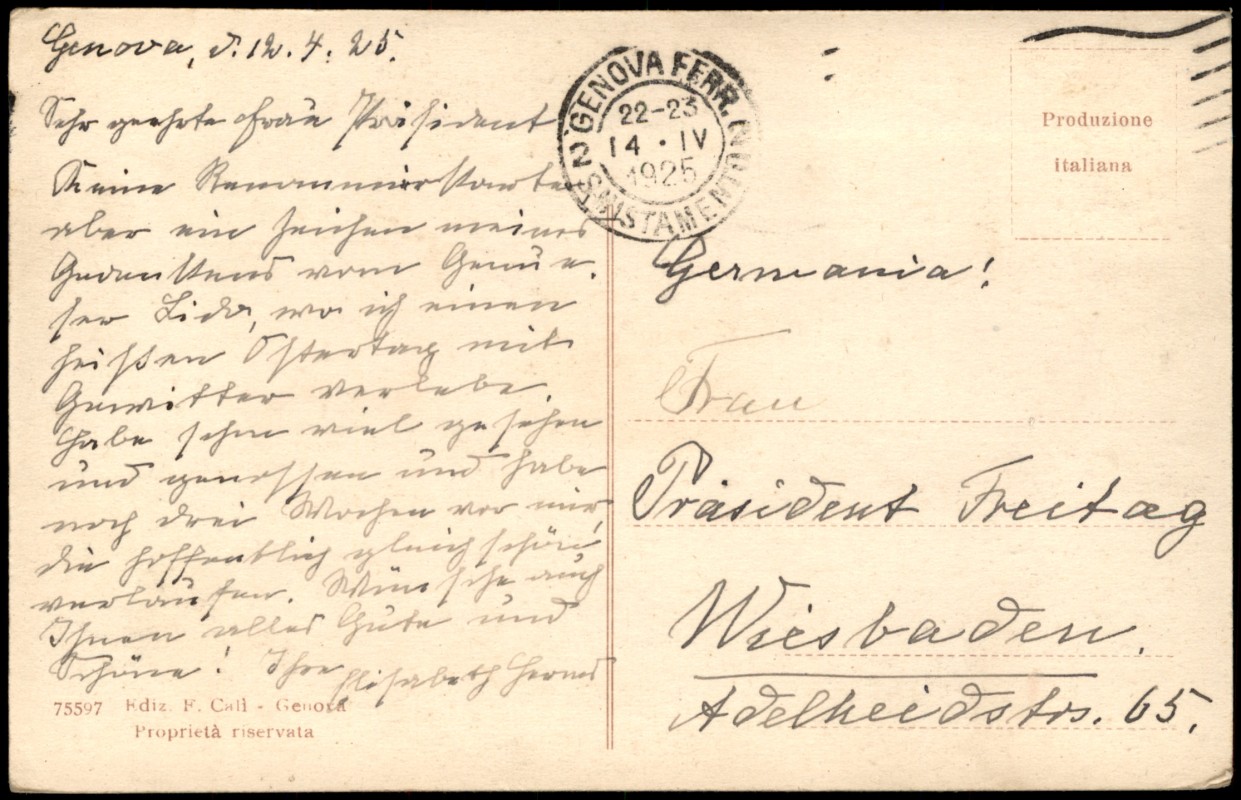 Genova, d. 12. 4. 25.
Sehr geehrte Frau Präsident
Keine Renommierkarte
aber ein Zeichen meines
Gedenkens vom Genue-
ser Lido, wo ich einen
heißen Ostertag mit
Gewitter verlebe.
Habe schon viel gesehen
und genossen und habe
noch drei Wochen vor mir,
die hoffentlich gleich schön
verlaufen. Wünsche auch
Ihnen alles Gute und
Schöne! Ihre Elisabeth
75597 Ediz. F. Calì - Genova
Proprietà riservata
GENOVA FERR.
22-23
14 · IV
1925
SMISTAMENTO
Produzione
italiana
Germania!
Frau
Präsident Freitag
Wiesbaden.
Adelheidstr. 65.